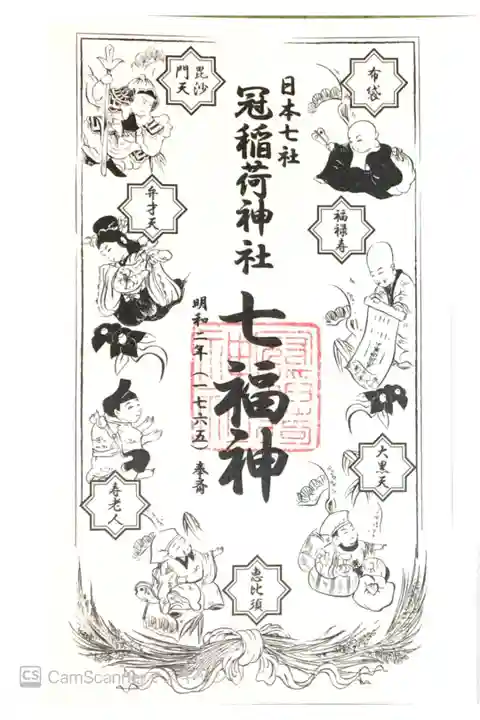 日本七社
冠稲荷神社
七福神
明和二年(一七六五)奉斎
布袋
福禄寿
大黒天
恵比須
毘沙門天
弁才天
寿老人
CS CamScanner